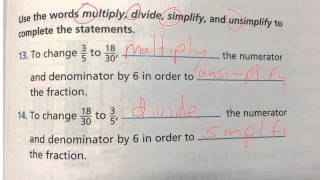 Use the words multiply, divide, simplify, and unsimplify to
complete the statements.
13. To change 3/5 to 18/30, multiply the numerator
and denominator by 6 in order to unsimplify
the fraction.
14. To change 18/30 to 3/5, divide the numerator
and denominator by 6 in order to simplify
the fraction.